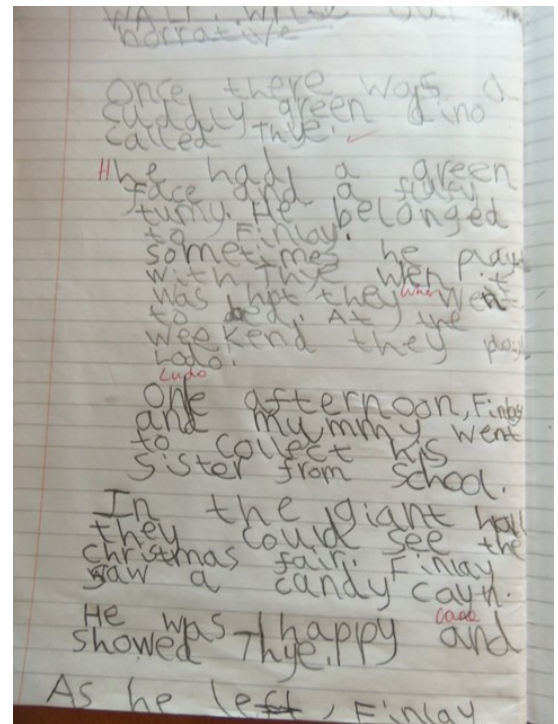 WALT: write our
narrative
Once there was a
cuddly green dino
called Thye.
He had a green
face and a flufy
tumy. He belonged
to Finlay.
sometimes he play
with Thye wen it
was hot they went
when
to bed. At the
weekend they play
Lodo.
Ludo
One afternoon, Finlay
and mummy went
to collect his
sister from school.
In the giant hall
they could see the
christmas fair. Finlay
saw a candy cayn.
cane
He was happy and
showed Thye.
As he left, Finlay